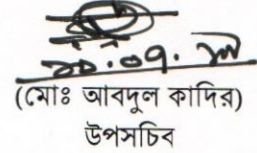 (মোঃ আবদুল কাদির)
উপসচিব